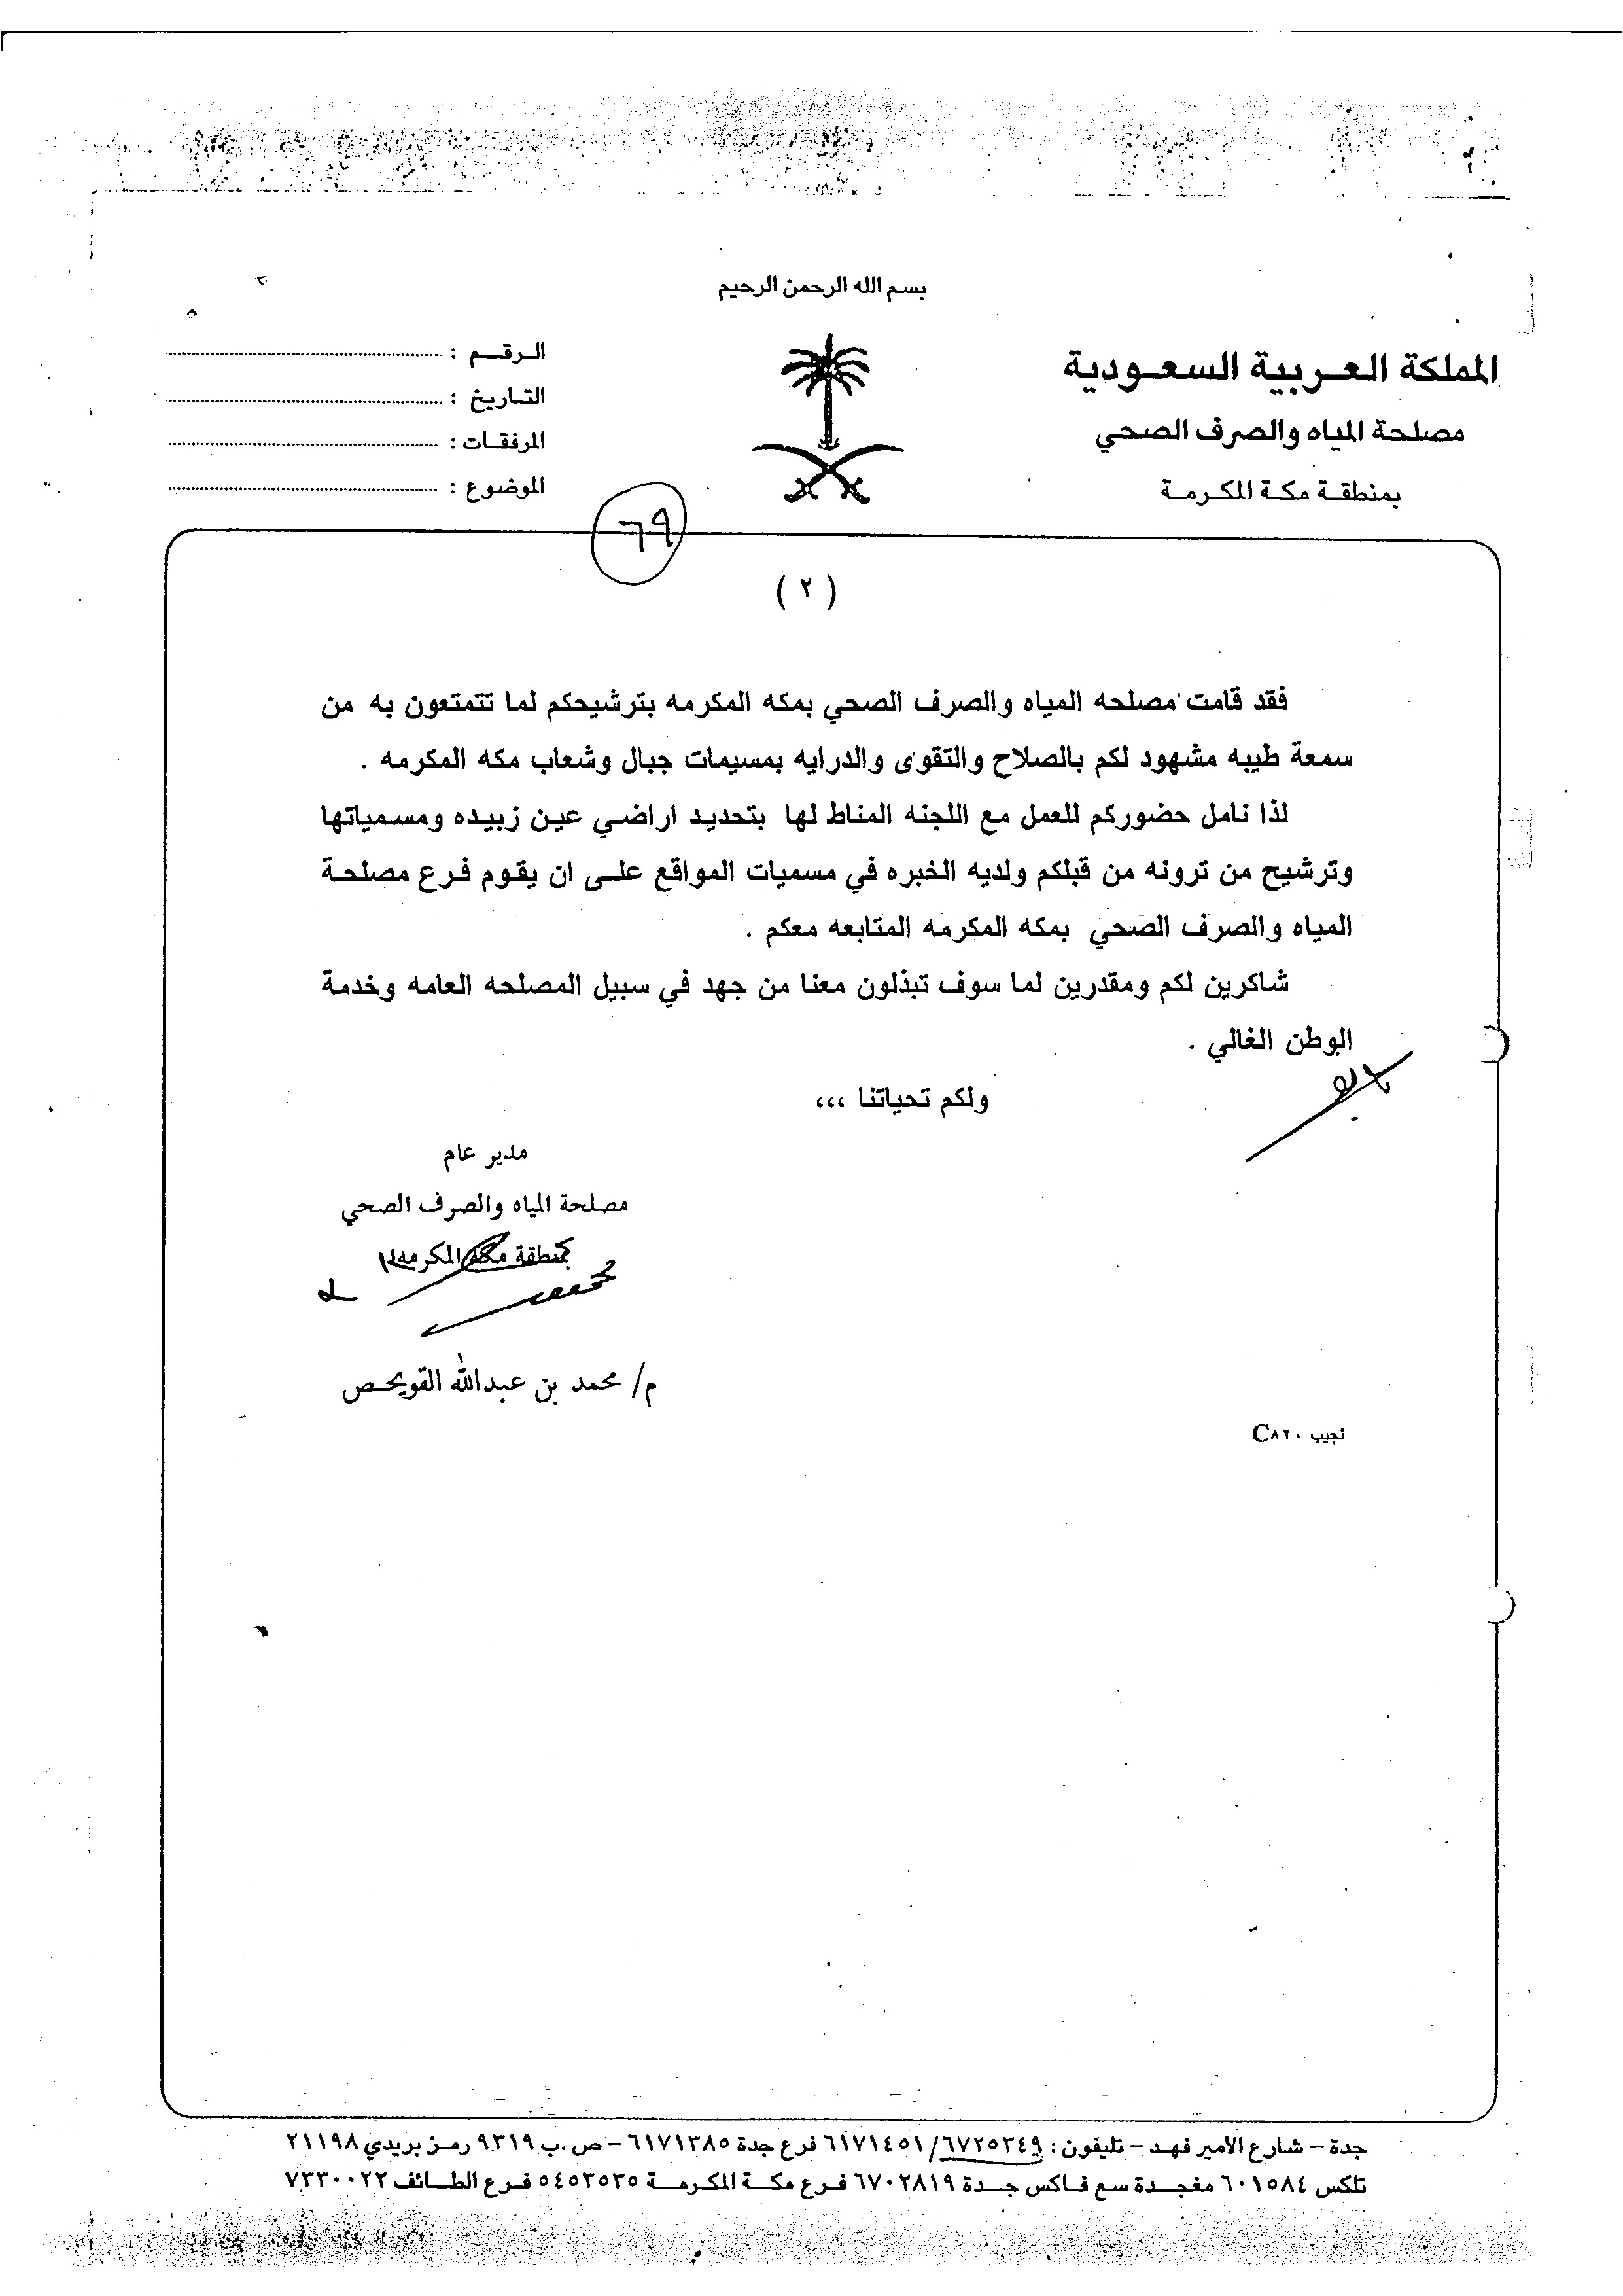 بسم الله الرحمن الرحيم
المملكة العربية السعودية
مصلحة المياه والصرف الصحي
بمنطقة مكة المكرمة
الرقم :
التاريخ :
المرفقات :
الموضوع :
٦٩
( ٢ )
فقد قامت مصلحه المياه والصرف الصحي بمكه المكرمه بترشيحكم لما تتمتعون به من
سمعة طيبه مشهود لكم بالصلاح والتقوى والدرايه بمسيمات جبال وشعاب مكه المكرمه .
لذا نامل حضوركم للعمل مع اللجنه المناط لها بتحديد اراضي عين زبيده ومسمياتها
وترشيح من ترونه من قبلكم ولديه الخبره في مسميات المواقع على ان يقوم فرع مصلحة
المياه والصرف الصحي بمكه المكرمه المتابعه معكم .
شاكرين لكم ومقدرين لما سوف تبذلون معنا من جهد في سبيل المصلحه العامه وخدمة
الوطن الغالي .
ولكم تحياتنا ،،،
مدير عام
مصلحة المياه والصرف الصحي
بمنطقة مكة المكرمه
م/ محمد بن عبدالله القويحص
نجيب C٨٢٠
جدة – شارع الأمير فهد – تليفون : ٦٧٢٥٣٤٩/ ٦١٧١٤٥١ فرع جدة ٦١٧١٣٨٥ – ص .ب ٩٣١٩ رمز بريدي ٢١١٩٨
تلكس ٦٠١٥٨٤ مغجدة سع فاكس جدة ٦٧٠٢٨١٩ فرع مكة المكرمة ٥٤٥٣٥٣٥ فرع الطائف ٧٣٣٠٠٢٢